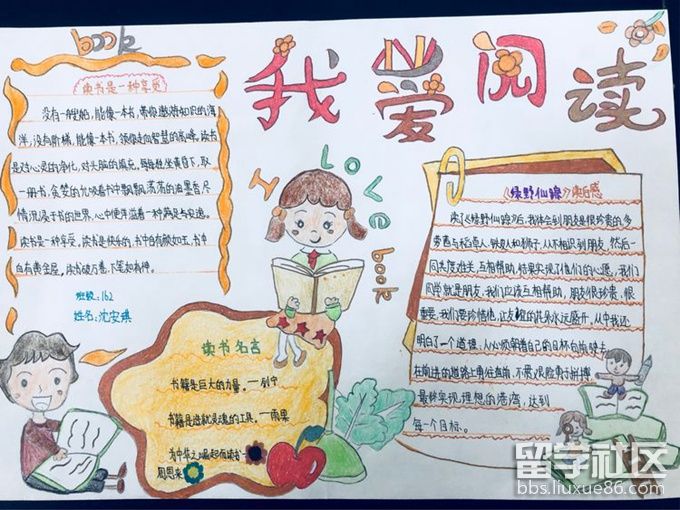 book
我爱阅读
I LOVE book
读书是一种享受
没有一艘船,能像一本书,带你遨游知识的海
洋,没有阶梯,能像一本书,领你走向智慧的高峰,读书
是对心灵的净化,对头脑的填充。每每坐黄昏下,取
一册书,贪婪的允吸着书中飘飘荡荡的油墨香,尽
情沉浸于书的世界,心中便洋溢着一种满足与安逸。
读书是一种享受。读书是快乐的,书中自有颜如玉,书中
自有黄金屋。读书破万卷,下笔如有神。
班级:162
姓名:沈安琪
读书名言
书籍是巨大的力量。—列宁
书籍是造就灵魂的工具。—雨果
为中华之崛起而读书—
周恩来
《绿野仙踪》读后感
读《绿野仙踪》后,我体会到朋友是很珍贵的,多
萝茜与稻草人、铁皮人和狮子,从不相识到朋友,然后一
同共度难关,互相帮助,结果实现了他们的心愿,我们
同学就是朋友,我们应该互相帮助,朋友很珍贵,很
重要,我们要珍惜他,让友谊的花朵永远盛开。从中我还
明白了一个道理,人必须朝着自己的目标勇敢驶去
在前进的道路上勇往直前,不畏艰险勇于拼搏
最终实现理想的港湾,达到
每一个目标。
留学社区
bbs.liuxue86.com